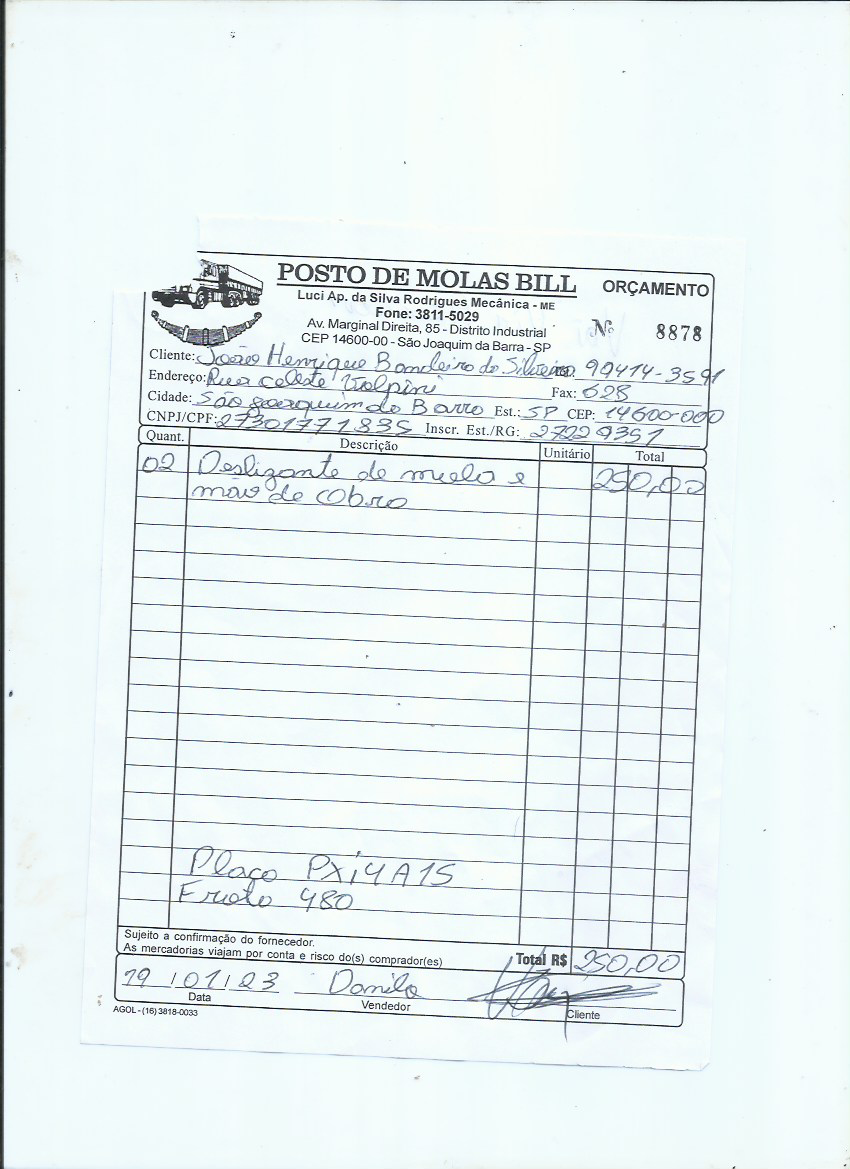 POSTO DE MOLAS BILL ORÇAMENTO
Luci Ap. da Silva Rodrigues Mecânica - ME
Fone: 3811-5029
Av. Marginal Direita, 85 - Distrito Industrial Nº 8878
CEP 14600-00 - São Joaquim da Barra - SP
Cliente: João Henrique Bandeira da Silveira 99414-3591
Endereço: Rua celeste Volpini Fax: 628
Cidade: São Joaquim da Barra Est.: SP CEP: 14600-000
CNPJ/CPF: 27301771835 Inscr. Est./RG: 27229351
Quant. Descrição Unitário Total
02 Deslizante de mola e 250,00
mão de obra
Placa PXI4A15
Frota 480
Sujeito a confirmação do fornecedor.
As mercadorias viajam por conta e risco do(s) comprador(es) Total R$ 250,00
19 / 01 / 23 Danilo
Data Vendedor Cliente
AGOL - (16) 3818-0033